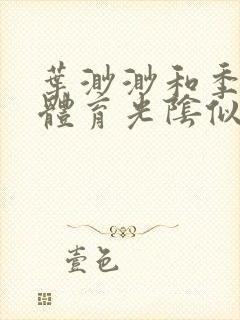 葉渺渺和季
體育老陰似
壹色